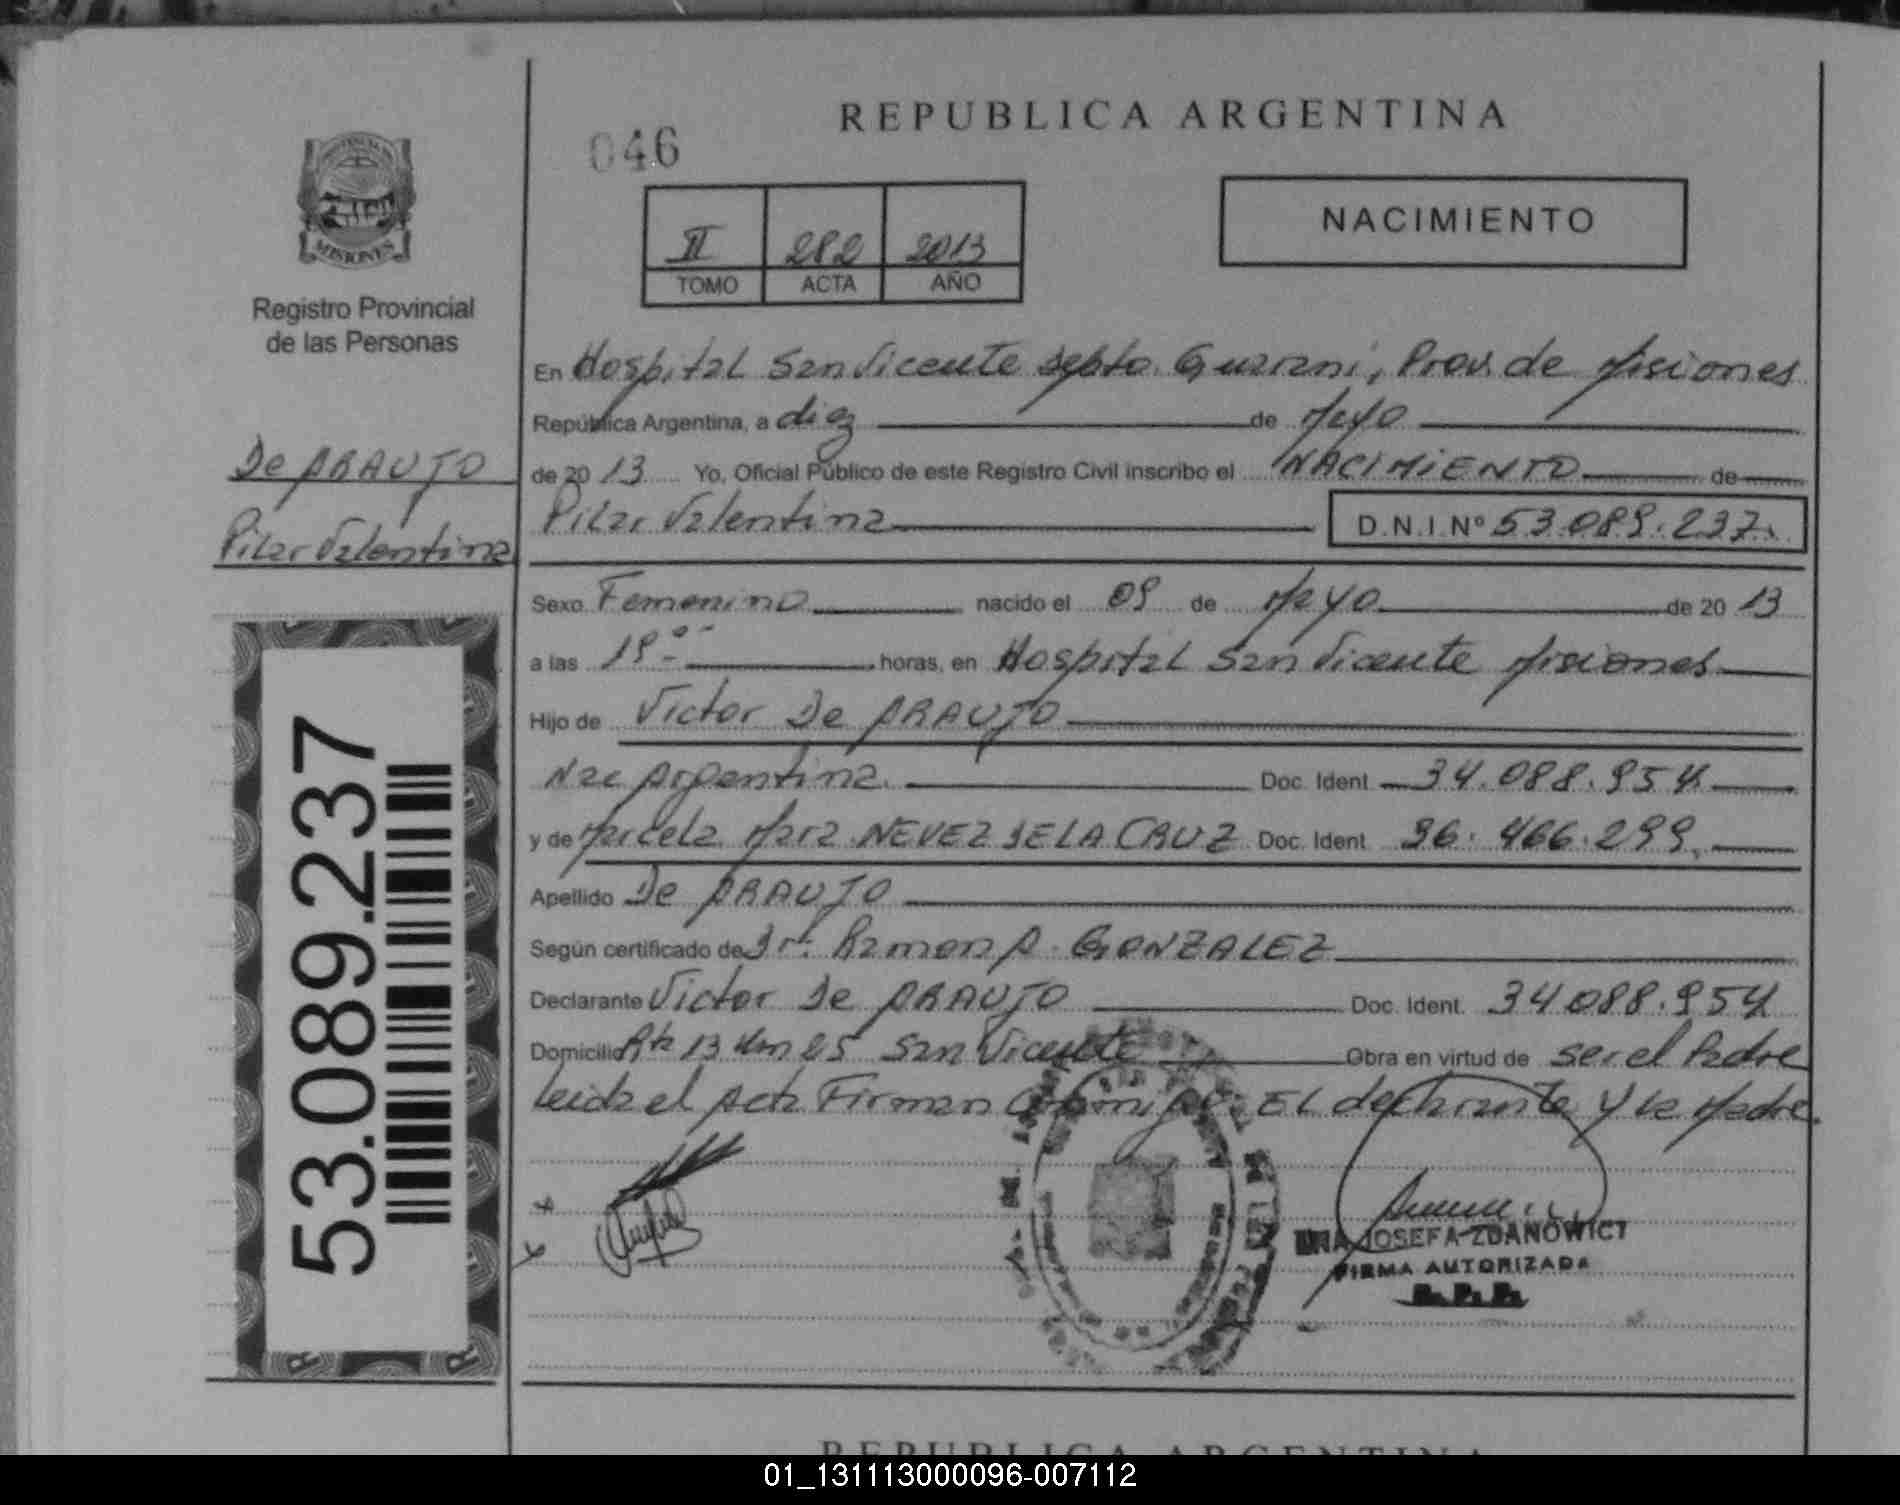 REPUBLICA ARGENTINA
046
NACIMIENTO
II 282 2013
TOMO ACTA AÑO
MISIONES
Registro Provincial
de las Personas
De ARAUJO
Pilar Valentina
53.089.237
En Hospital San Vicente Depto. Guarani, Prov. de Misiones
República Argentina, a diez de Mayo
de 20 13 Yo, Oficial Público de este Registro Civil inscribo el NACIMIENTO de
Pilar Valentina D.N.I. Nº 53.089.237.
Sexo Femenino nacido el 09 de Mayo de 20 13
a las horas, en Hospital San Vicente Misiones
Hijo de Victor De ARAUJO
Nac Argentina. Doc. Ident 34.088.954
y de Marcela Mara NEVEZ DE LA CRUZ Doc. Ident 36.466.299.
Apellido De ARAUJO
Según certificado de Dr. Ramon A. GONZALEZ
Declarante Victor De ARAUJO Doc. Ident. 34088.954
Domicilio Rta 13 Km 25 San Vicente Obra en virtud de ser el Padre
Leida el Acta Firman Conmigo. EL declarante y la Madre.
JOSEFA ZDANOWICT
FIRMA AUTORIZADA
R.P.P.
REPUBLICA ARGENTINA
01_131113000096-007112